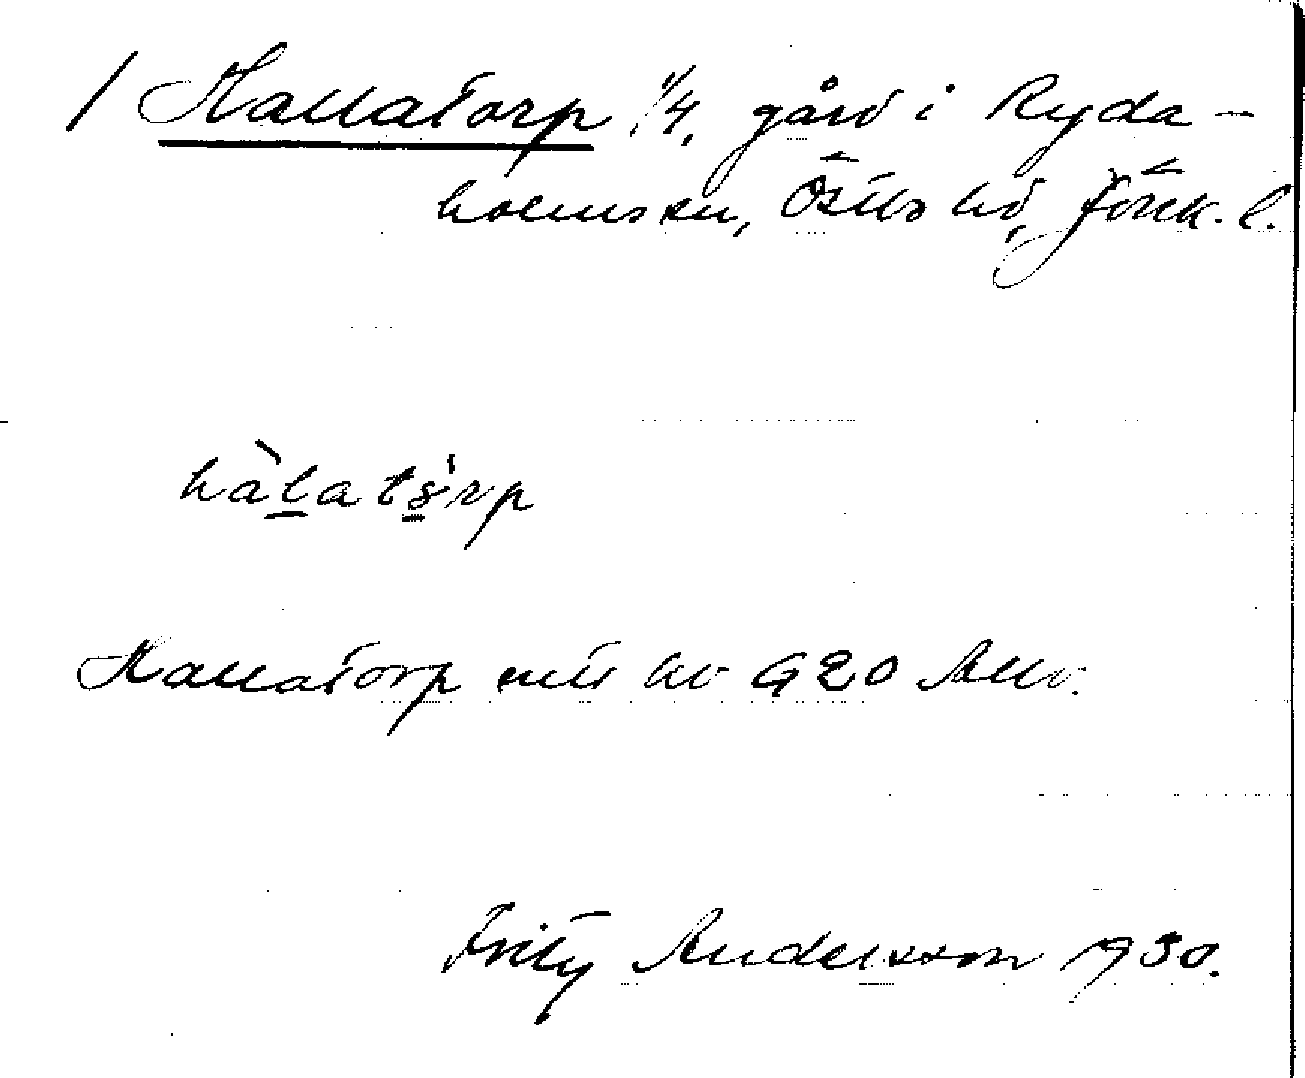 / Hallatorp 1/4, gård i Ryda-
holms sn, Östbo hd, Jönk. l.
hàlatò̤rp
Hallatorp enl. hv 920 Allv.
Fritz Andersson 1930.